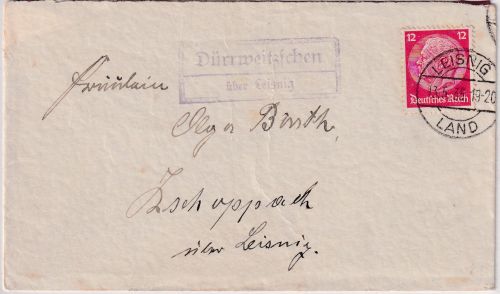 12 12
Deutsches Reich
LEISNIG
19-20
LAND
Dürrweitzschen
über Leisnig
Fräulein
Olga
Zschoppach
über Leisnig.